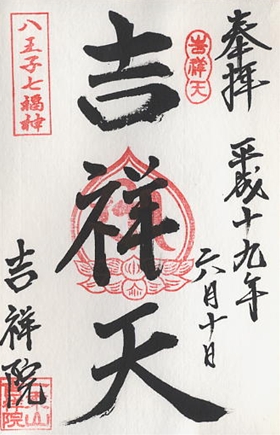 奉拝
平成十九年
六月十日
吉祥天
吉祥天
八王子七福神
吉祥院